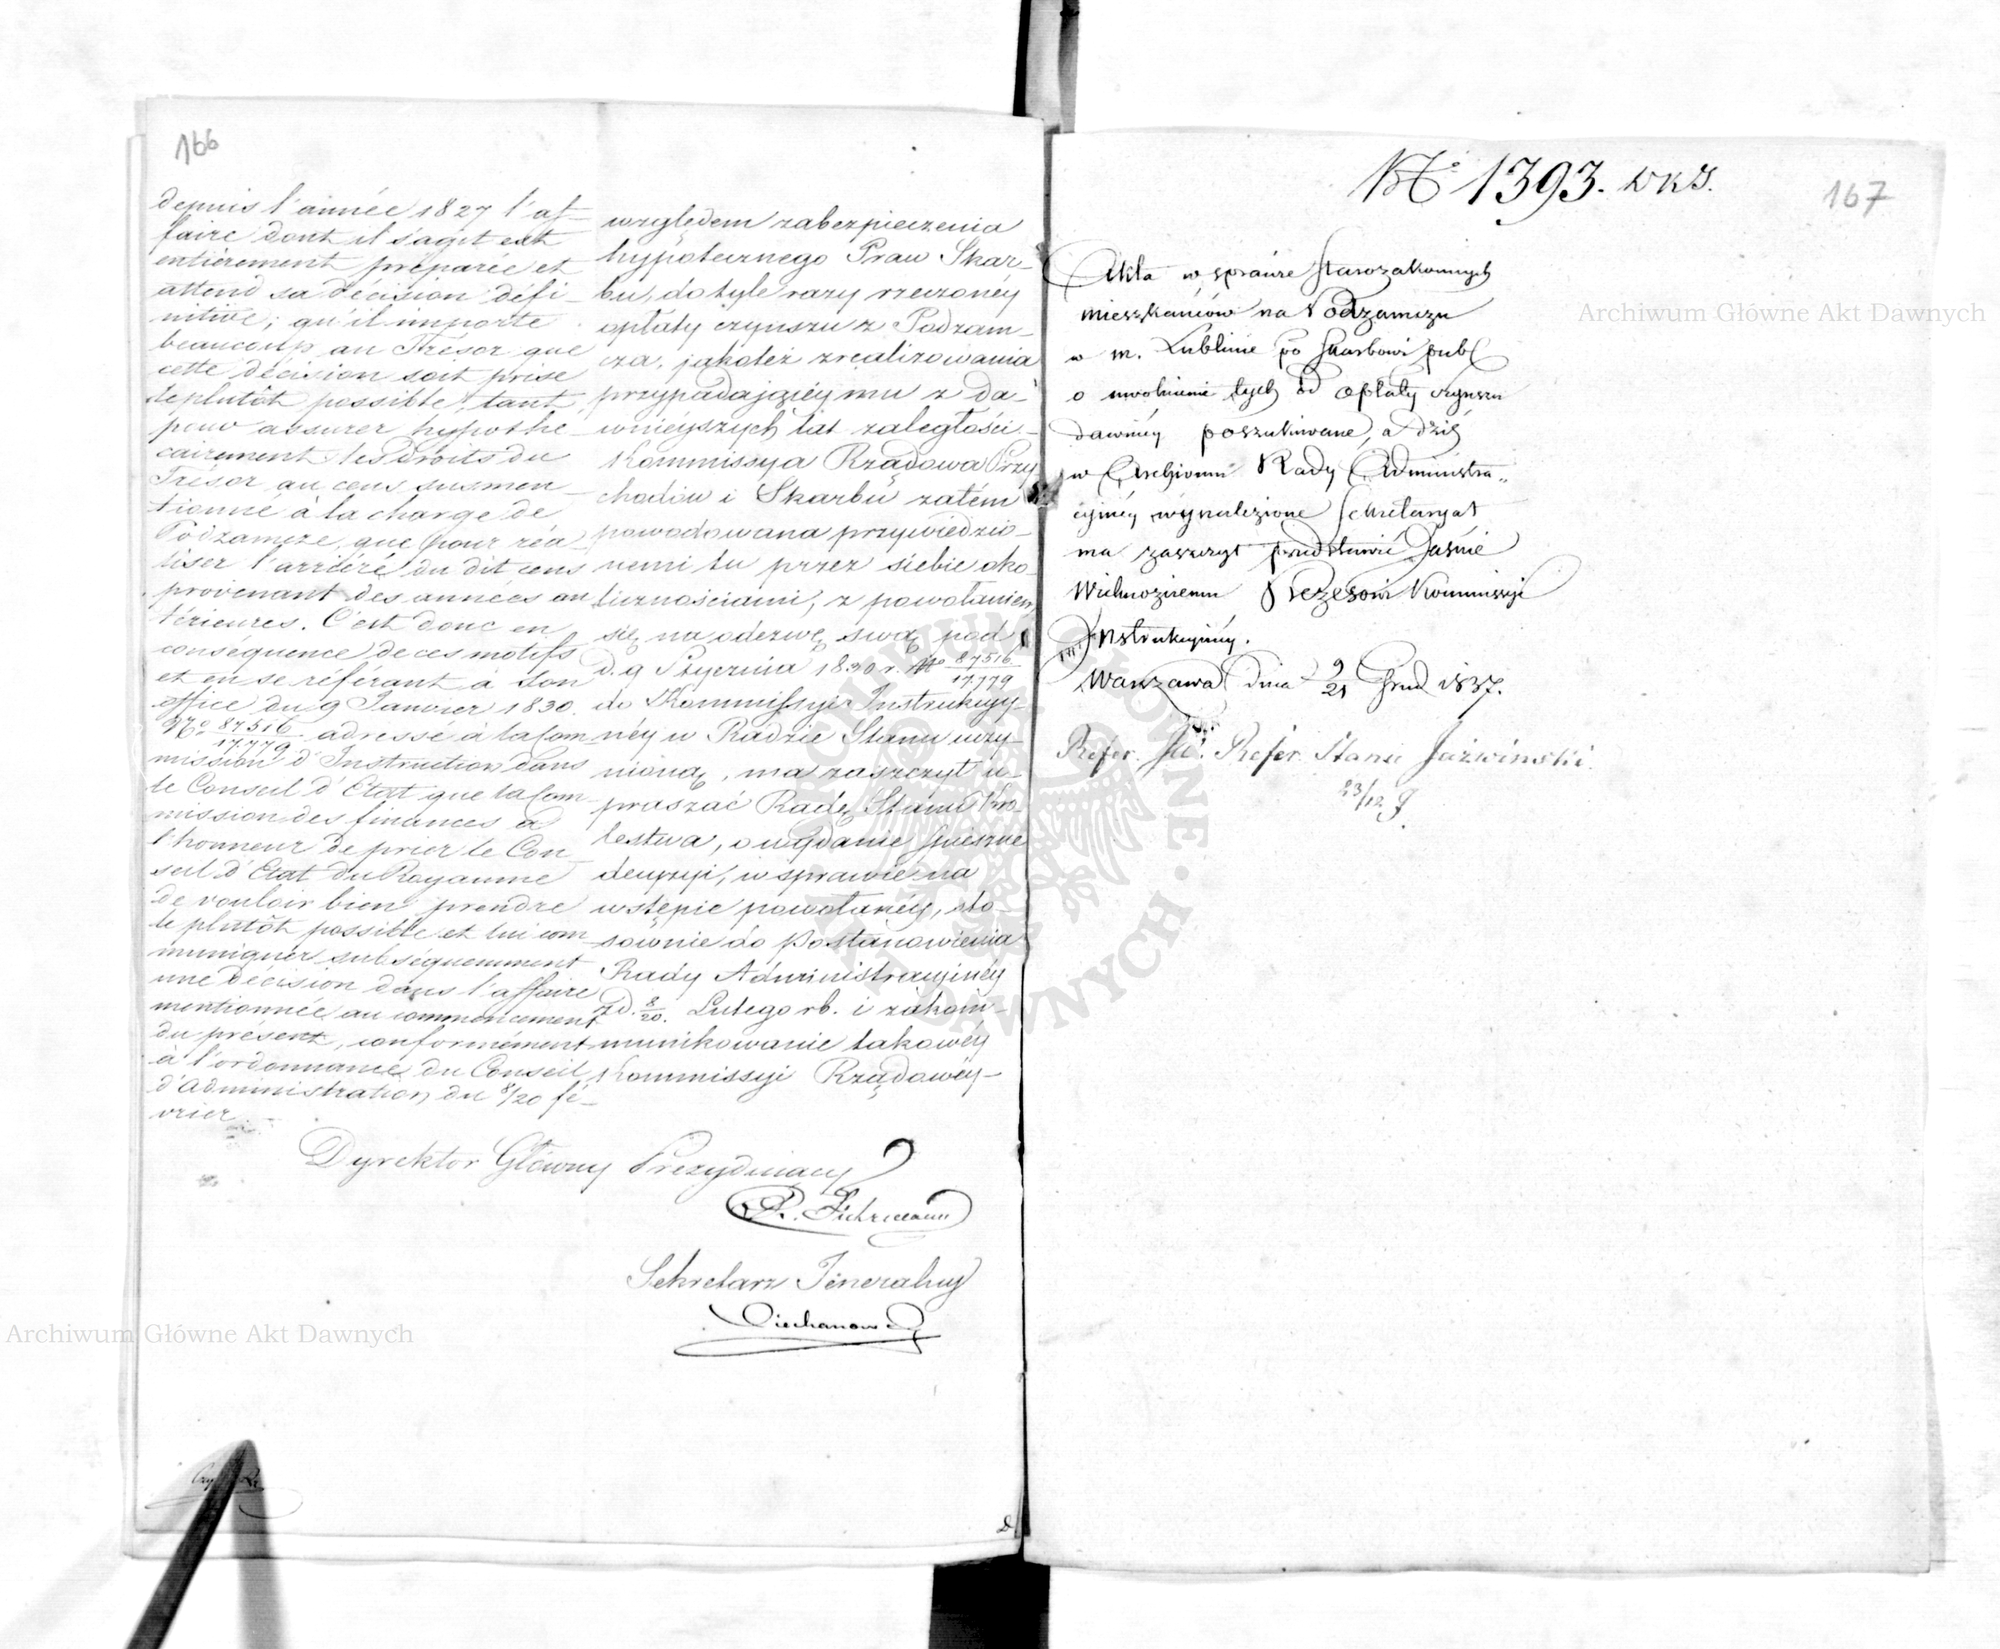 166
depuis l'année 1827 l'af-
faire dont il s'agit est
entièrement préparée et
attend sa décision défi-
nitive; qu'il importe
beaucoup au Trésor que
cette décision soit prise
le plutôt possible, tant
pour assurer hypothé-
cairement les droits du
Trésor au cens susmen-
tionné à la charge de
Podzamcze, que pour réa-
liser l'arriéré du dit cens
provenant des années an
térieures. C'est donc en
conséquence de ces motifs
et en se référant à son
office du 9 Janvier 1830.
No. 87516/17779 adressé à la Com-
mission d'Instruction dans
le Conseil d'Etat que la Com-
mission des finances a
l'honneur de prier le Con-
seil d'Etat du Royaume
de vouloir bien prendre
le plutôt possible et lui com-
muniquer subséquemment
une décision dans l'affaire
mentionnée au commencement
du présent, conformément
à l'ordonnance du Conseil
d'Administration du 8/20 fé-
vrier.
względem zabezpieczenia
hypotecznego Praw Skar-
bu, do tyle razy rzeczonéy
opłaty czynszu z Podzam-
cza, jakoteż zrealizowania
przypadającéy mu z da-
wnieyszych lat zaległości -
Kommissya Rządowa Przy
chodów i Skarbu zatém
powodowana przywiedzio-
nemi tu przez siebie oko-
licznościami, z powołaniem
się na odezwę swą pod
d. 9 Stycznia 1830 r. No 87516/17779
do Kommissyi Instrukcyy-
néy w Radzie Stanu uczy-
nioną, ma zaszczyt u-
praszać Radę Stanu Kró-
lestwa, o wydanie śpieszne
decyzyi, w sprawie na
wstępie powołanéy, sto-
sownie do Postanowienia
Rady Administracyinéy
z d. 8/20. Lutego rb. i zakom-
munikowanie takowéy
Kommissyi Rządowéy -
Dyrektor Główny Prezyduiący
R. Fuhrmann
Sekretarz Jeneralny
Ciechanowski
No 1393. DKJ.
167
Akta w sprawie Starozakonnych
mieszkańców na Podzamczu
w m. Lublinie po Skarbowi publ
o uwolnienie tych od opłaty czynszu
dawniéy poszukiwane, a dziś
w Archiwum Rady Administra„
cyinéy wynalezione Sekretaryat
ma zaszczyt przedstawić Jaśnie
Wielmożnemu Prezesowi Kommissyi
Instrukcyinéy.
Warszawa dnia 9/21 Grud 1837.
Refer. JW. Refer. Stanu Jaźwiński.
23/12
Archiwum Główne Akt Dawnych
Archiwum Główne Akt Dawnych